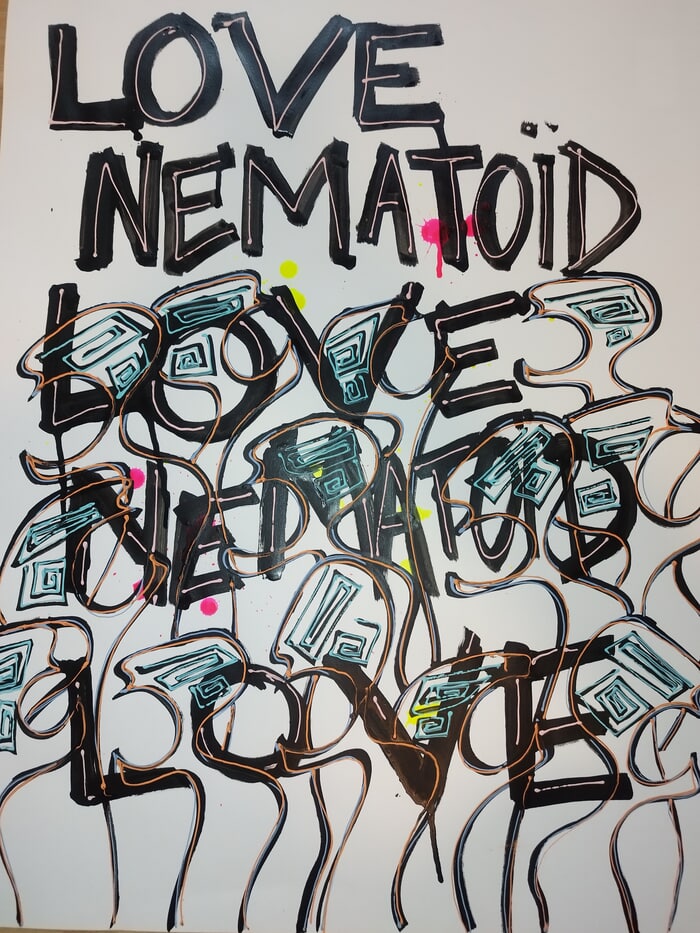 LOVE
NEMATOÏD
LOVE
NEMATOID
LOVE